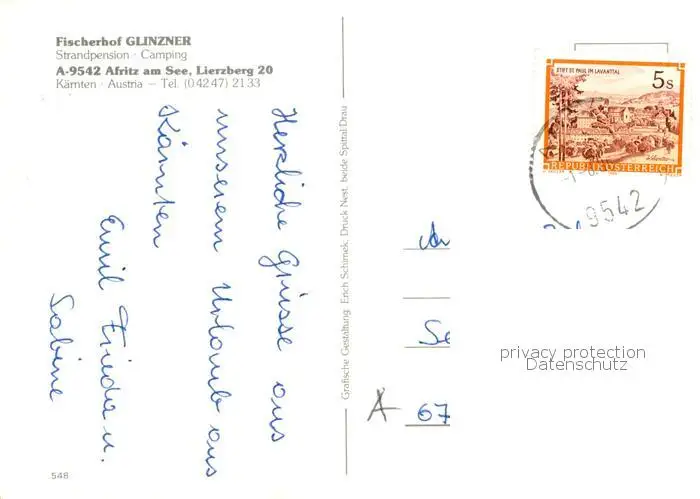 Fischerhof GLINZNER
Strandpension · Camping
A-9542 Afritz am See, Lierzberg 20
Kärnten · Austria – Tel. (0 42 47) 21 33
Herzliche Grüsse aus
unserem Urlaub aus
Kärnten
Emil Frieda u.
Sabine
548
Grafische Gestaltung: Erich Schimek, Druck Nest, beide Spittal/Drau
STIFT ST. PAUL IM LAVANTTAL
5 S
REPUBLIK ÖSTERREICH
9542
Se
A 67
privacy protection
Datenschutz